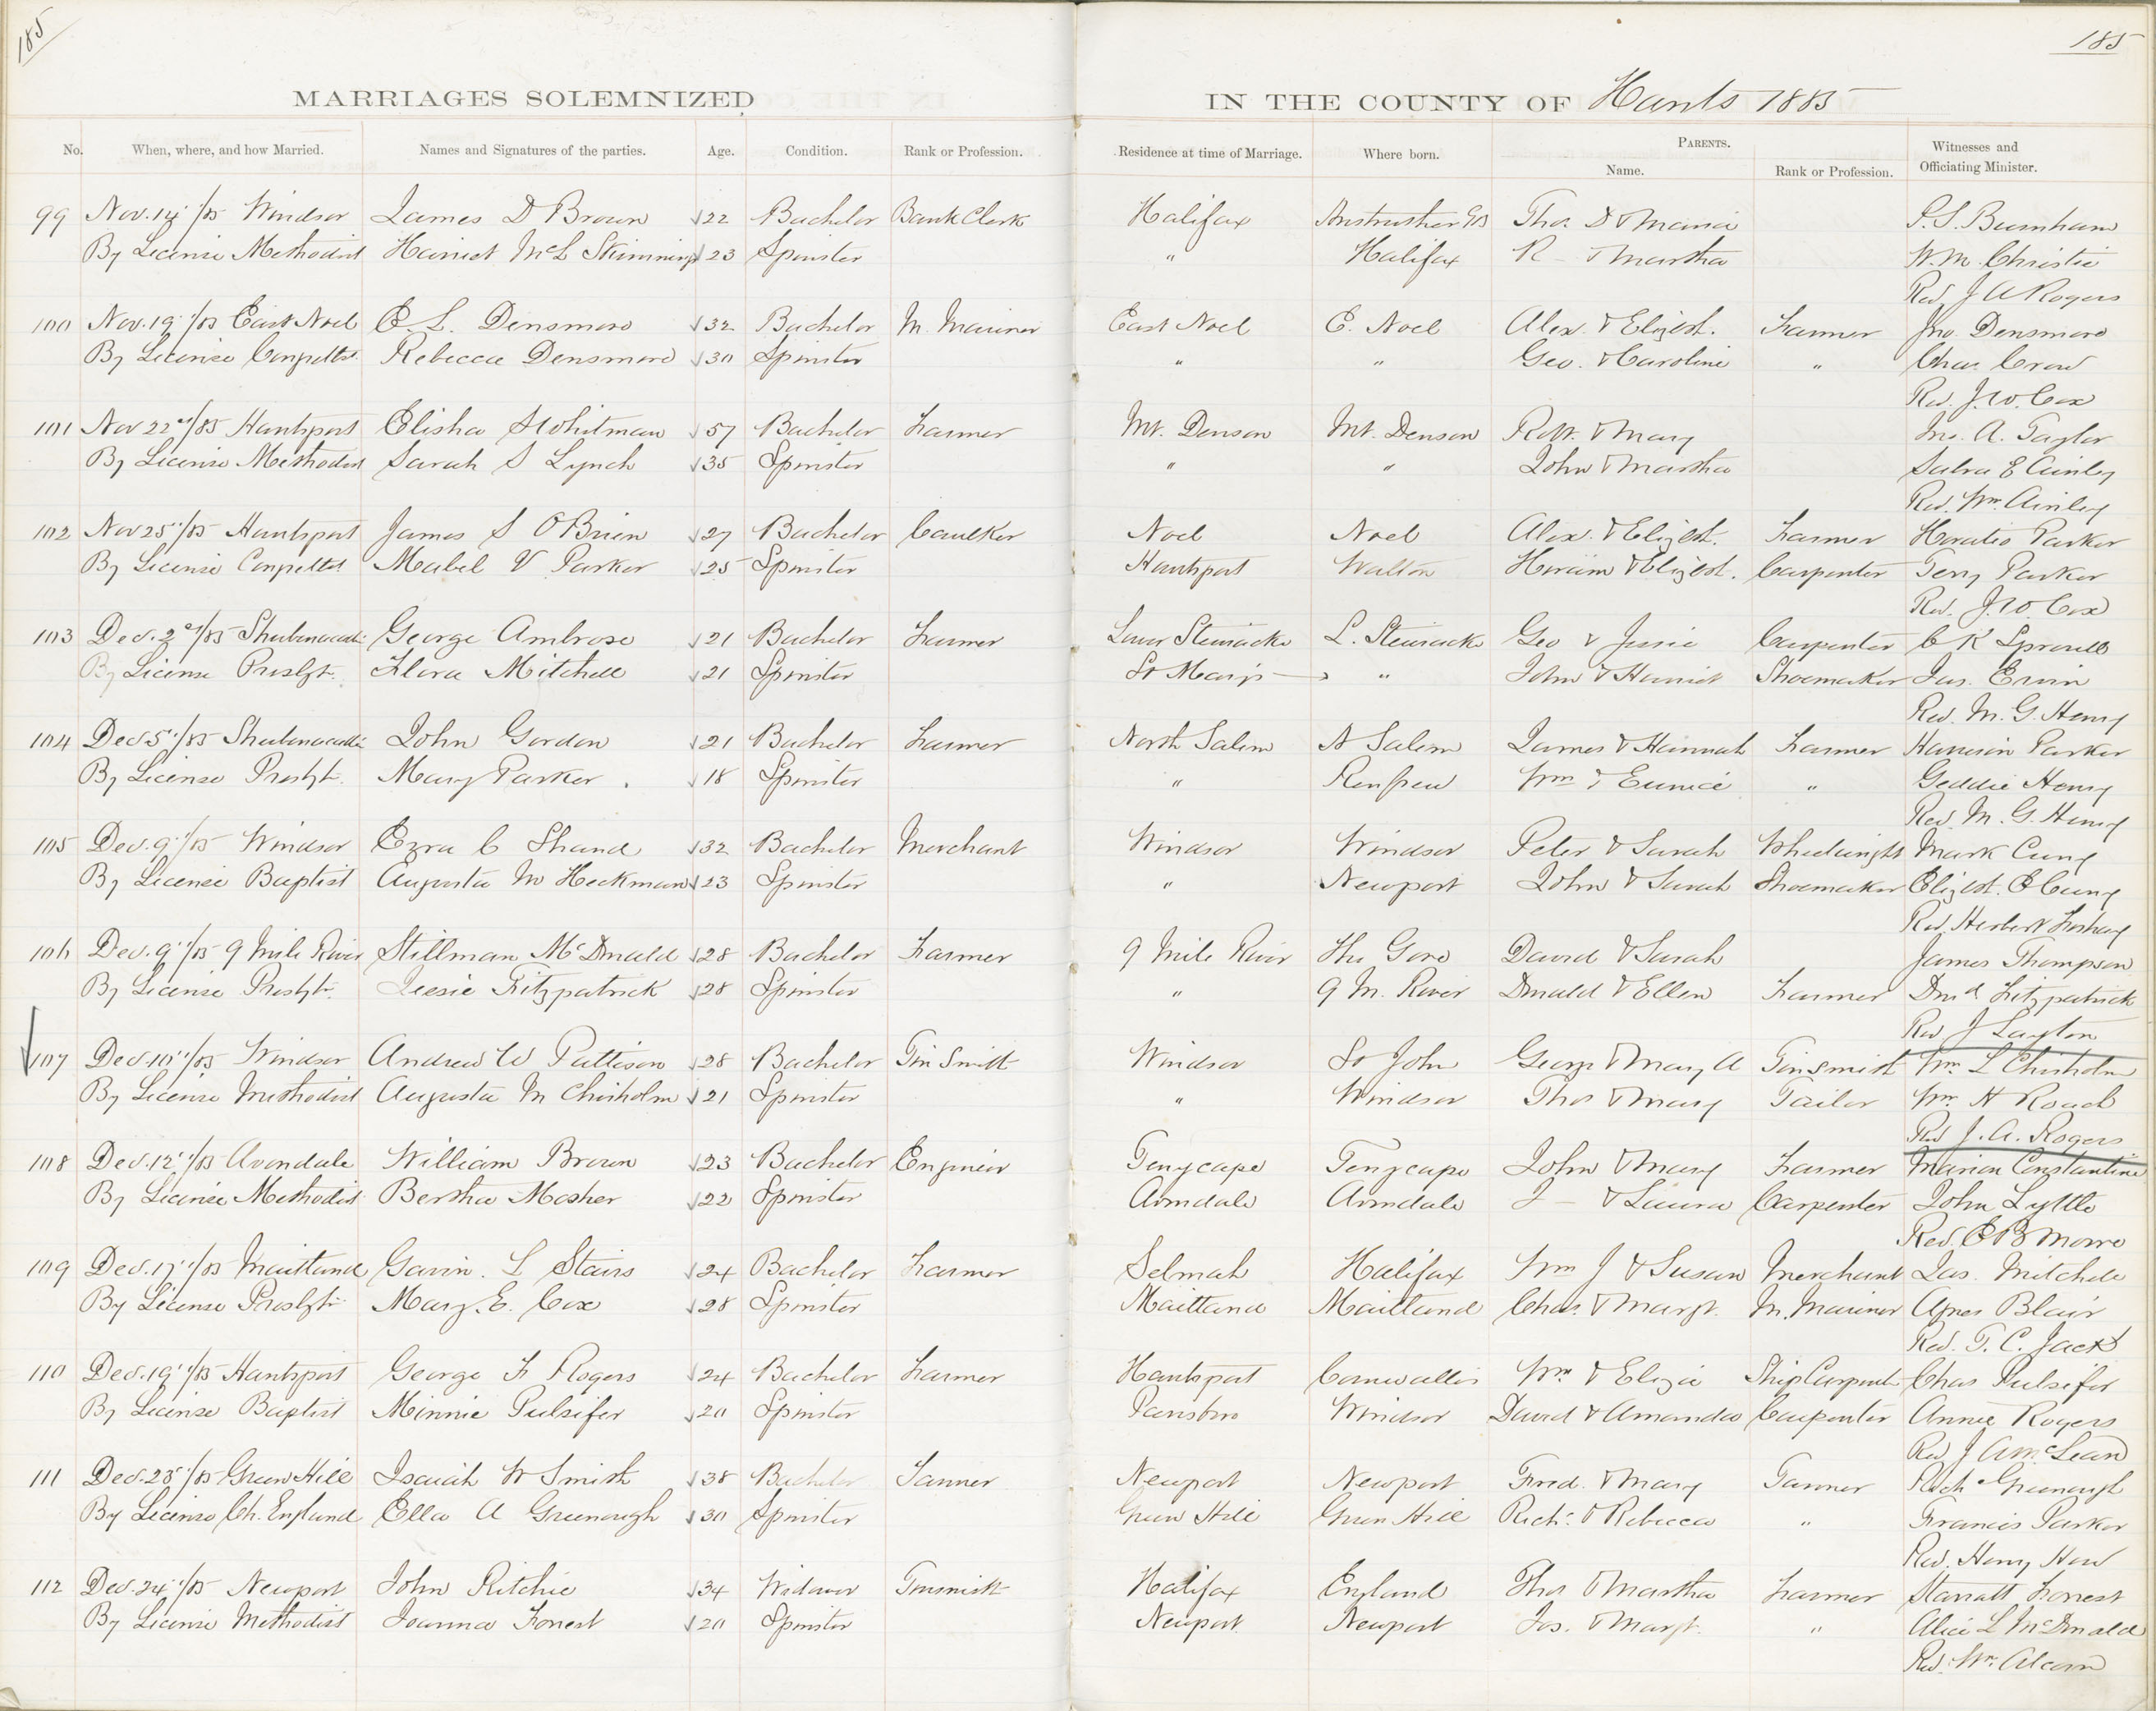 185
185
MARRIAGES SOLEMNIZED
IN THE COUNTY OF Hants 1885
No. When, where, and how Married. Names and Signatures of the parties. Age. Condition. Rank or Profession. Residence at time of Marriage. Where born. PARENTS. Name. Rank or Profession. Witnesses and Officiating Minister.
99 Nov. 14th/85 Windsor James D Brown 22 Bachelor Bank Clerk Halifax Anstruther GB Thos. D & Maria S.S. Burnham
By License Methodist Harriet McL Skimmings 23 Spinster " Halifax R — & Martha W. M. Christie
Rev J A Rogers
100 Nov. 19th/85 East Noel E. L. Densmore 32 Bachelor M. Mariner East Noel E. Noel Alex. & Elizbt. Farmer Jno. Densmore
By License Congxltst. Rebecca Densmore 30 Spinster " " Geo. & Caroline " Chas. Crow
Rev. J. W. Cox
101 Nov 22nd/85 Hantsport Elisha S Whitman 57 Bachelor Farmer Mt. Denson Mt. Denson Robt. & Mary Jno. A. Taylor
By License Methodist Sarah S Lynch 35 Spinster " " John & Martha E Ainley
Rev. Wm. Ainley
102 Nov 25th/85 Hantsport James S O'Brien 27 Bachelor Caulker Noel Noel Alex. & Elizbt. Farmer Horatio Parker
By License Mabel V Parker 25 Spinster Hantsport Walton Hiram & Elizbt. Carpenter Terry Parker
Rev. J. W. Cox
103 Dec. 2nd/85 Shubenacadie George Ambrose 21 Bachelor Farmer Lower Stewiacke L. Stewiacke Geo & Jessie Carpenter C K Sproull
By License Presbyt. Flora Mitchell 21 Spinster St Mary's — " John & Harriet Shoemaker Jas. Ervin
Rev. M. G. Henry
104 Dec 5th/85 Shubenacadie John Gordon 21 Bachelor Farmer North Salem N Salem James & Hannah Farmer Harrison Parker
By License Presbyt. Mary Parker. 18 Spinster " Renfrew Wm & Eunice " Geddie Henry
Rev. M. G. Henry
105 Dec. 9th/85 Windsor Ezra C Shand 32 Bachelor Merchant Windsor Windsor Peter & Sarah Wheelwright Mark Curry
By License Baptist Augusta M Heckman 23 Spinster " Newport John & Sarah Shoemaker Elizbt. E Curry
Rev. Herbert Foshay
106 Dec. 9th/85 9 Mile River Stillman McDonald 28 Bachelor Farmer 9 Mile River The Gore David & Sarah James Thompson
By License Presbyt. Jessie Fitzpatrick 28 Spinster " 9 M. River Donald & Ellen Farmer Dond Fitzpatrick
Rev J Layton
107 Dec. 10th/85 Windsor Andrew W Pattison 28 Bachelor Tin Smith Windsor St John George & Mary A Tinsmith Wm. L Chisholm
By License Methodist Augusta M Chisholm 21 Spinster " Windsor Thos & Mary Tailor Wm. H Roach
Rev J. A. Rogers
108 Dec. 12th/85 Avondale William Brown 23 Bachelor Engineer Tenycape Tenycape John & Mary Farmer Marion Constantine
By License Methodist Bertha Mosher 22 Spinster Avondale Avondale J — & Laura Carpenter John Lyttle
Rev. E B Moore
109 Dec. 17th/85 Maitland Gavin. L Stairs 24 Bachelor Farmer Selmah Halifax Wm J & Susan Merchant Jas. Mitchell
By License Presbyt. Mary. E. Cox 28 Spinster Maitland Maitland Chas. & Margt. M. Mariner Agnes Blair
Rev. T. C. Jack
110 Dec. 19th/85 Hantsport George F Rogers 24 Bachelor Farmer Hantsport Cornwallis Wm. & Eliza Ship Carpentr Chas Pulsifer
By License Baptist Minnie Pulsifer 20 Spinster Parrsboro Windsor David & Amanda Carpenter Annie Rogers
Rev J A McLean
111 Dec. 23rd/85 Green Hill Isaiah W Smith 38 Bachelor Tanner Newport Newport Fred. & Mary Tanner Greenough
By License Ch. England Ella A Greenough 30 Spinster Green Hill Green Hill Richd. & Rebecca " Francis Parker
Rev. Henry How
112 Dec. 24th/85 Newport John Ritchie 34 Widower Tinsmith Halifax England Thos & Martha Farmer Starratt Forrest
By License Methodist Joanna Forrest 20 Spinster Newport Newport Jos. & Margt. " Alice L McDonald
Rev. Wm. Alcorn